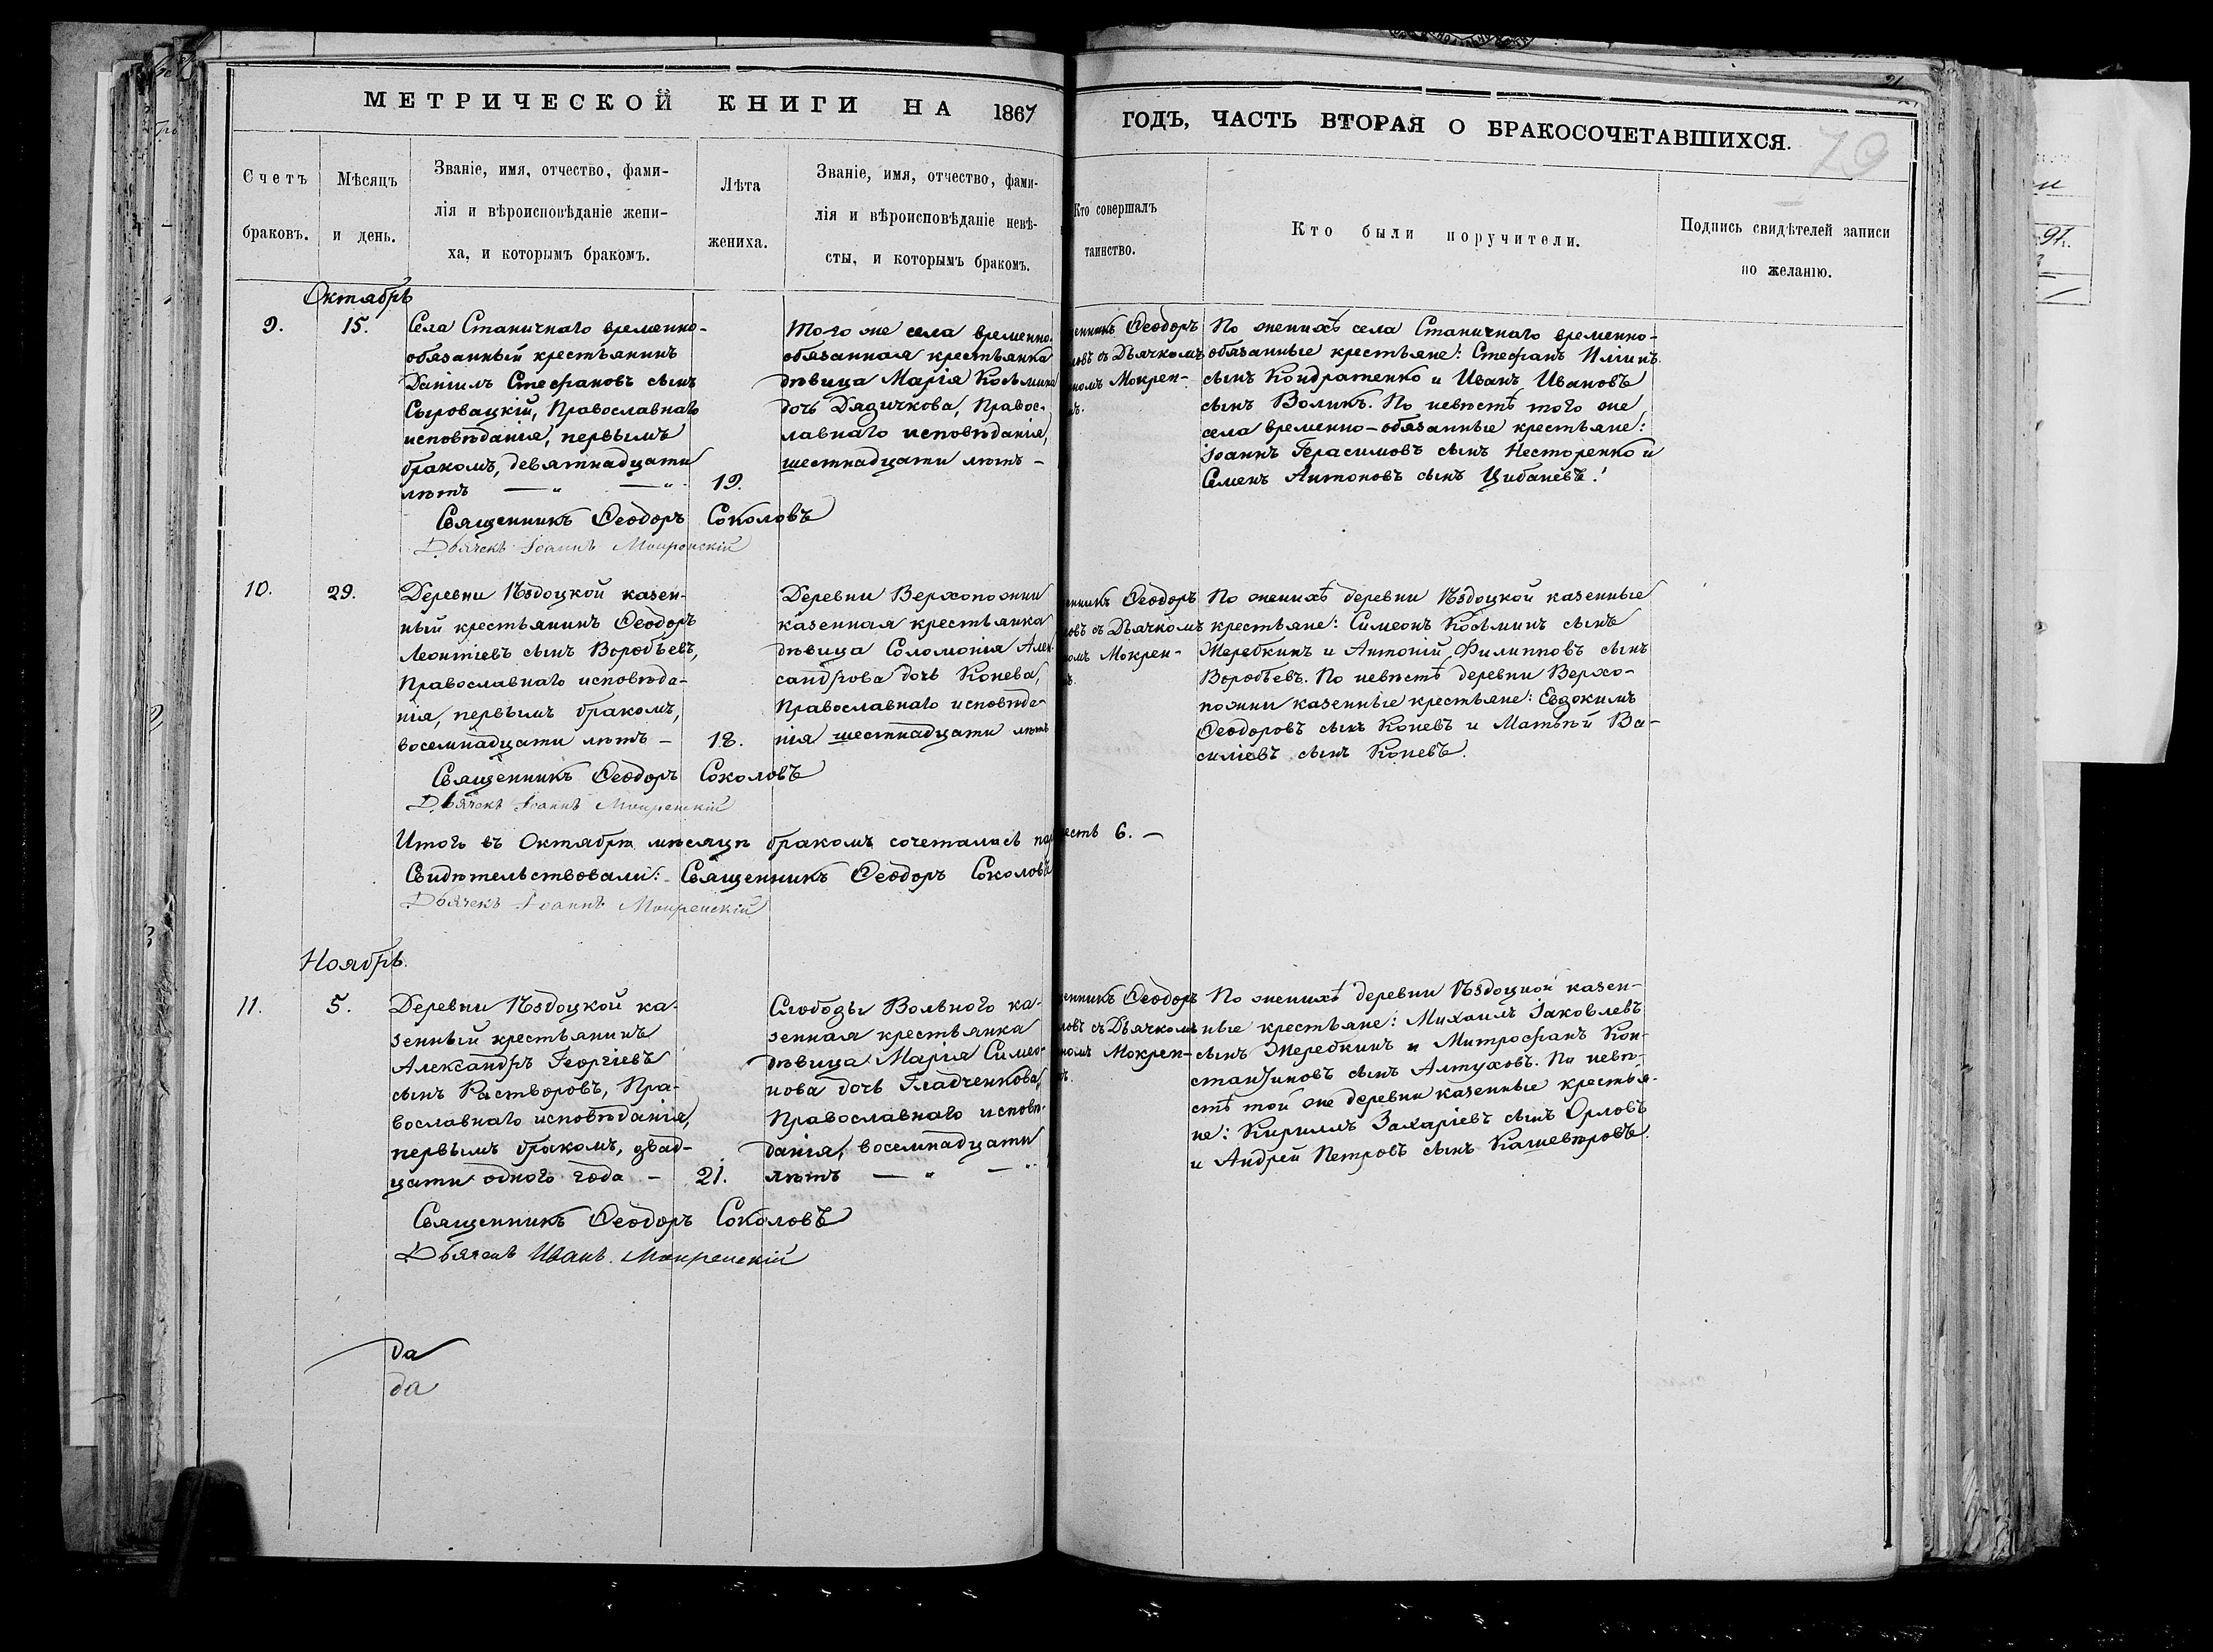 МЕТРИЧЕСКОЙ КНИГИ НА 1867
ГОДЪ, ЧАСТЬ ВТОРАЯ О БРАКОСОЧЕТАВШИХСЯ.
Счетъ
браковъ.
Мѣсяцъ
и день.
Званіе, имя, отчество, фами-
лія и вѣроисповѣданіе жени-
ха, и которымъ бракомъ.
Лѣта
жениха.
Званіе, имя, отчество, фами-
лія и вѣроисповѣданіе невѣ-
сты, и которымъ бракомъ.
Кто совершалъ
таинство.
Кто были поручители.
Подпись свидѣтелей записи
по желанію.
Октябрь
9.
15.
Села Станичнаго временно-
обязанный крестьянинъ
Даніилъ Стефановъ сынъ
Сыровацкій, Православнаго
исповѣданія, первымъ
бракомъ, девятнадцати
лѣтъ — " — "
19.
Того же села временно-
обязанная крестьянка
дѣвица Марія Косьмина
дочь Дядичкова, Правос-
лавнаго исповѣданія,
шестнадцати лѣтъ —
енникъ Ѳеодоръ
ловъ съ Дьячкомъ
номъ Мокрен-
По женихѣ села Станичнаго временно-
обязанные крестьяне: Стефанъ Иліинъ
сынъ Кондратенко и Иванъ Ивановъ
сынъ Воликъ. По невѣстѣ того же
села временно-обязанные крестьяне:
Іоаннъ Герасимовъ сынъ Несторенко и
Семенъ Антоновъ сынъ Цибаневъ.
Священникъ Ѳеодоръ Соколовъ
Дьячекъ Іоаннъ Мокренскій
10.
29.
Деревни Ѣздоцкой казен-
ный крестьянинъ Ѳеодоръ
Леонтіевъ сынъ Воробьевъ,
Православнаго исповѣда-
нія, первымъ бракомъ,
восемнадцати лѣтъ —
18.
Деревни Верхопожни
казенная крестьянка
дѣвица Соломонія Алек-
сандрова дочь Конева,
Православнаго исповѣда-
нія шестнадцати лѣтъ
енникъ Ѳеодоръ
ловъ съ Дьячкомъ
номъ Мокрен-
По женихѣ деревни Ѣздоцкой казенные
крестьяне: Симеонъ Косьминъ сынъ
Жеребкинъ и Антоній Филипповъ сынъ
Воробьевъ. По невѣстѣ деревни Верхо-
пожни казенные крестьяне: Евдокимъ
Ѳеодоровъ сынъ Коневъ и Матвѣй Ва-
силіевъ сынъ Коневъ.
Священникъ Ѳеодоръ Соколовъ
Дьячекъ Іоаннъ Мокренскій
Итого въ Октябрѣ мѣсяцѣ бракомъ сочеталось 6. —
Свидѣтельствовали: Священникъ Ѳеодоръ Соколовъ
Дьячекъ Іоаннъ Мокренскій
Ноябрь.
11.
5.
Деревни Ѣздоцкой ка-
зенный крестьянинъ
Александръ Георгіевъ
сынъ Растворовъ, Пра-
вославнаго исповѣданія,
первымъ бракомъ, двад-
цати одного года —
21.
Слободы Вольного ка-
зенная крестьянка
дѣвица Марія Симео-
нова дочь Гладченкова,
Православнаго исповѣ-
данія, восемнадцати
лѣтъ — " — "
енникъ Ѳеодоръ
ловъ съ Дьячкомъ
номъ Мокрен-
По женихѣ деревни Ѣздоцкой казен-
ные крестьяне: Михаилъ Іаковлевъ
сынъ Жеребкинъ и Митрофанъ Кон-
стантиновъ сынъ Алтуховъ. По невѣ-
стѣ той же деревни казенные крестья-
не: Кириллъ Захаріевъ сынъ Орловъ
и Андрей Петровъ сынъ
Священникъ Ѳеодоръ Соколовъ
Дьячекъ Иванъ Мокренскій
да
да